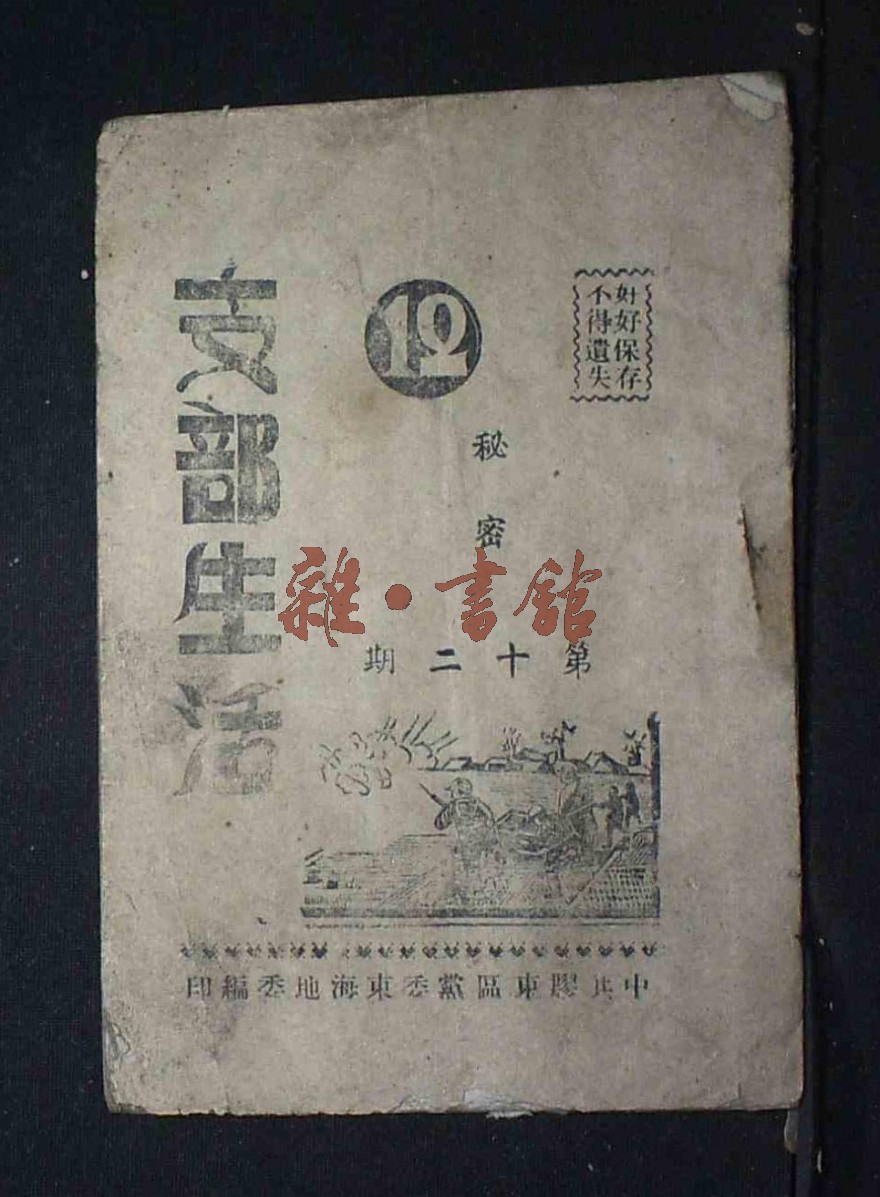 好好保存
不得遺失
12
支部生活
秘密
第十二期
中共膠東區黨委東海地委編印
雜·書館